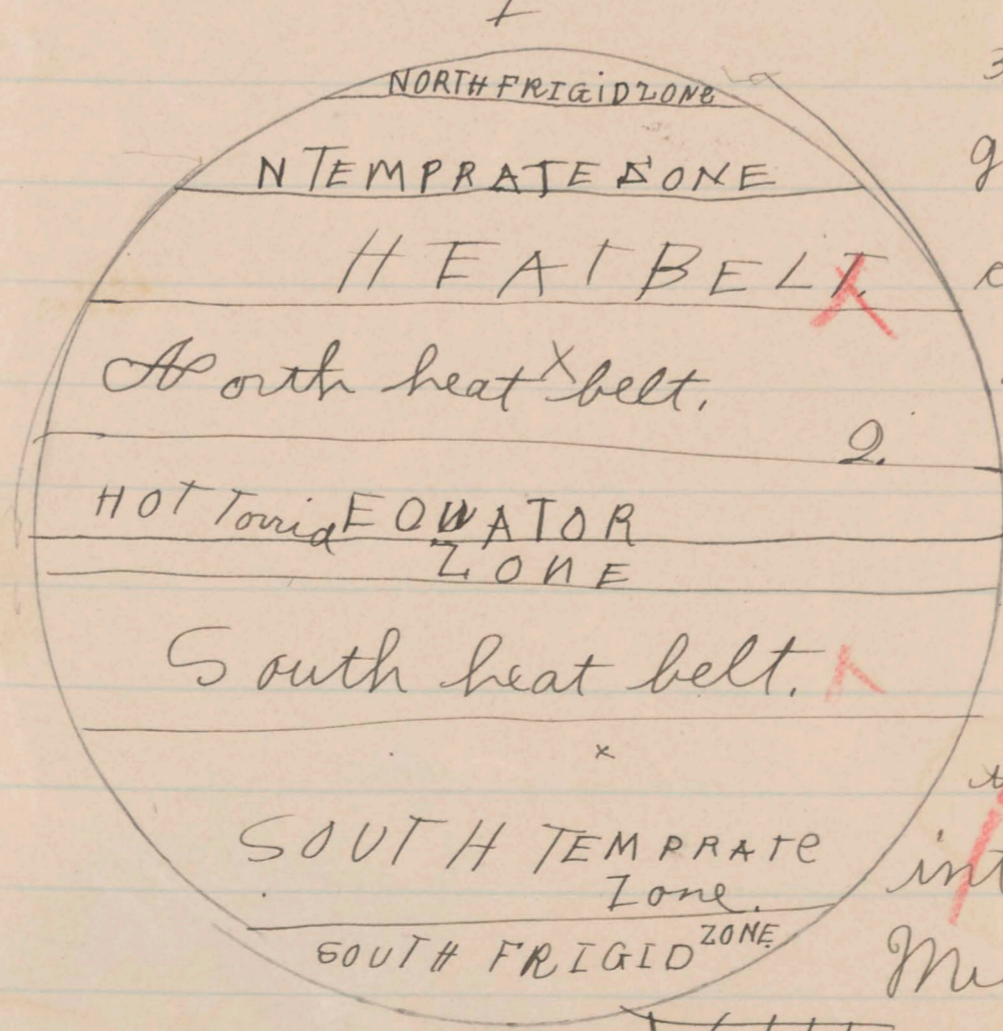 NORTH FRIGiD ZONe
N TEMPRATE ZONE
HEAT BELT.
North heat x belt.
2.
HOT Torrid EQUATOR
ZONE
South heat belt.
x
SOUTH TEMPRATe
Zone.
SOUTH FRIGID ZONE
int